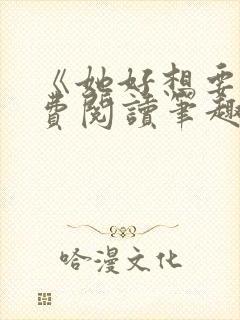 《她好想要
费阅读笔趣
哈漫文化